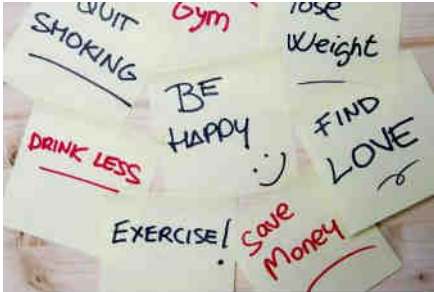 QUIT
SMOKING
Gym
lose
Weight
BE
HAPPY
:)
DRINK LESS
FIND
LOVE
EXERCISE!
Save
Money